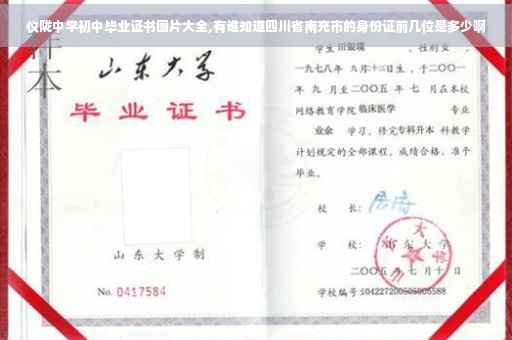 仪陇中学初中毕业证书图片大全,有谁知道四川省南充市的身份证前几位是多少啊
样本
山东大学
毕业证书
山东大学制
No. 0417584
学生 田骏瑛 ,性别女,
一九七八年 九月十二日生,于二〇〇一
年 九 月至二〇〇五 年 七 月在本校
网络教育学院 临床医学 专业
业余 学习,修完专科升本 科教学
计划规定的全部课程,成绩合格,准予
毕业。
校 长:
学 校: 山东大学
二〇〇五年 七 月 十 日
学校编号:104227200505005588